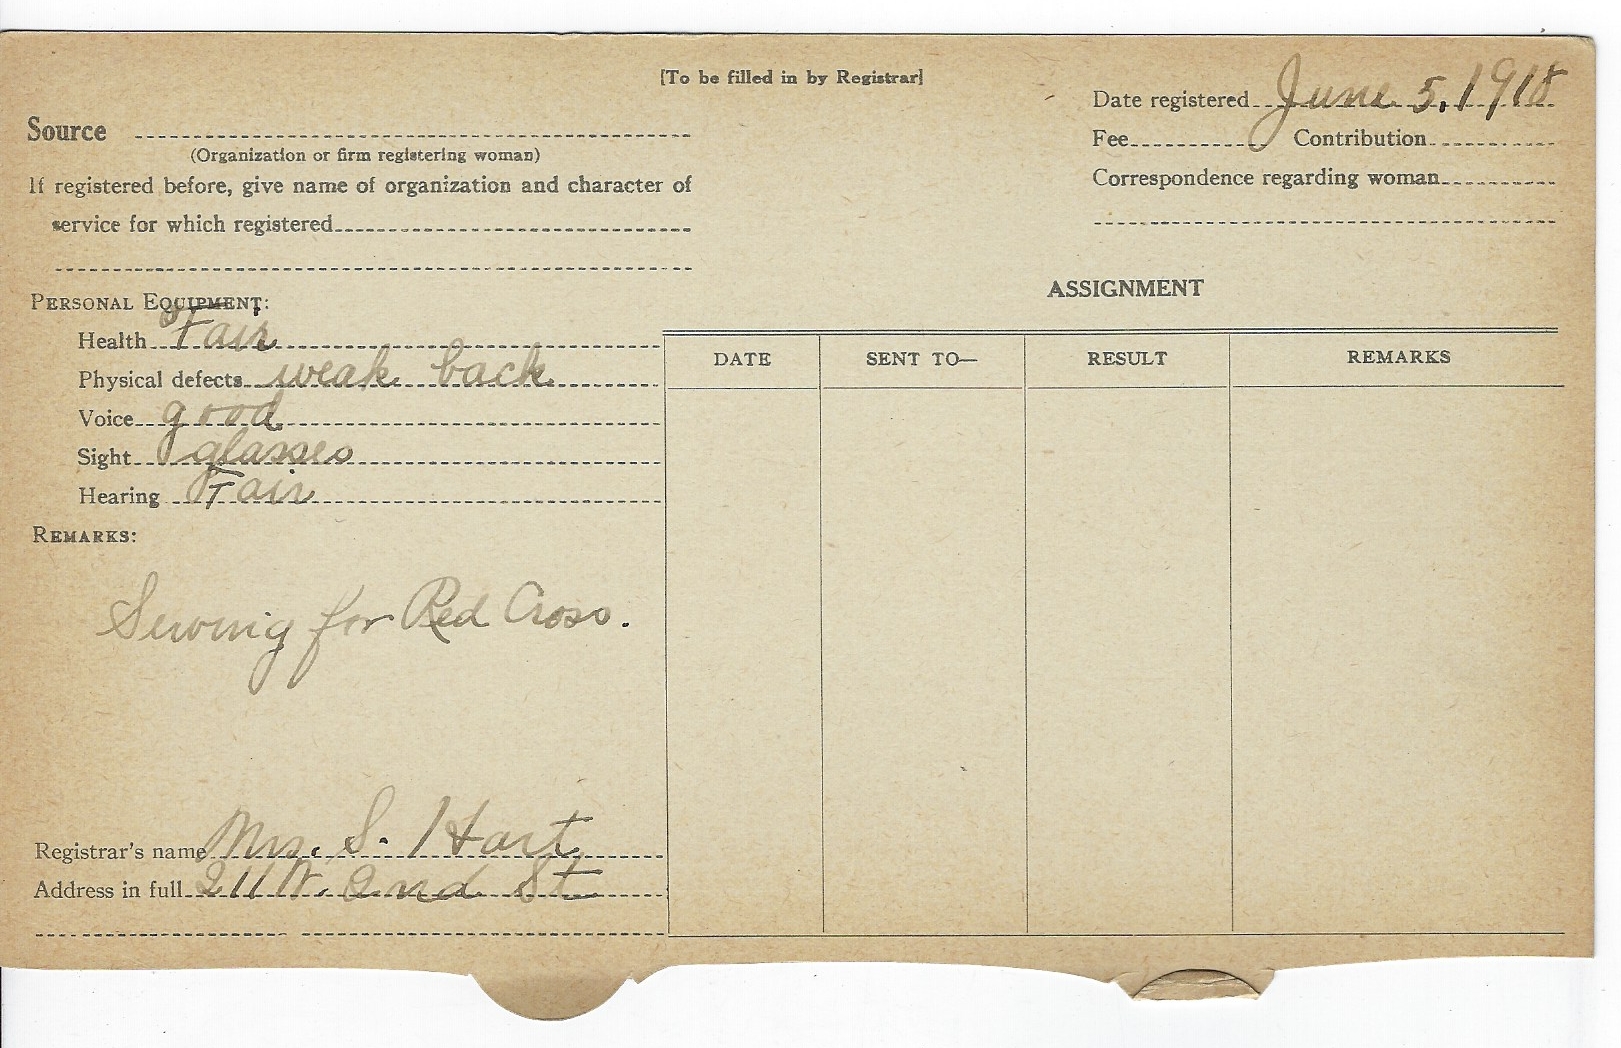 [To be filled in by Registrar]
Date registered June 5, 1918
Source
(Organization or firm registering woman)
Fee Contribution
If registered before, give name of organization and character of
service for which registered
Correspondence regarding woman
PERSONAL EQUIPMENT:
Health Fair
Physical defects weak back
Voice good
Sight glasses
Hearing Fair
REMARKS:
Sewing for Red Cross.
Registrar's name Mrs. S. Hart
Address in full 211 N. 2nd St
ASSIGNMENT
DATE SENT TO— RESULT REMARKS